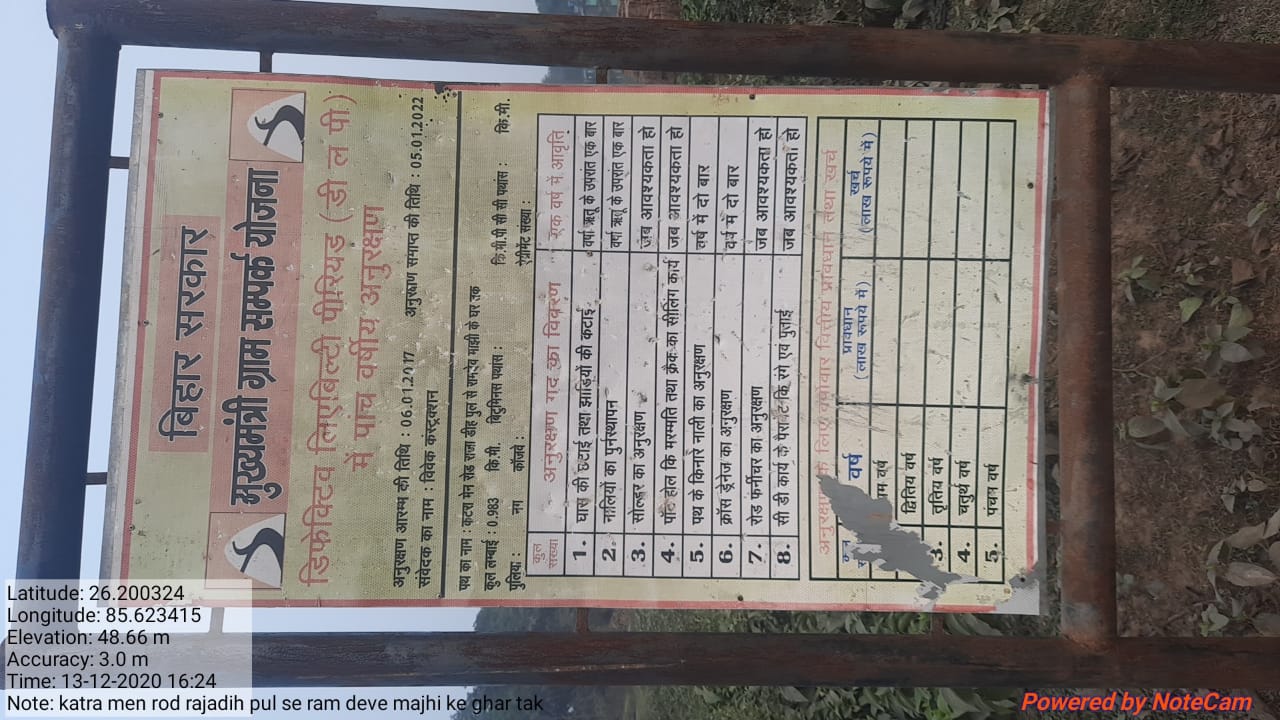 बिहार सरकार
मुख्यमंत्री ग्राम सम्पर्क योजना
डिफेक्टिव लिएबिल्टी पीरियड (डी ल पी)
में पाच वर्षीय अनुरक्षण
अनुरक्षण आरम्भ की तिथि : 06.01.2017 अनुरक्षण समाप्ती की तिथि : 05.01.2022
संवेदक का नाम : विवेक कंस्ट्रक्शन
पथ का नाम : कटरा मेन रोड राजा डीह पुल से रामदेव माझी के घर तक
कुल लम्बाई : 0.983 कि.मी. बिटुमिनस पथांस : कि.मी. पी सी सी पथांस : कि.मी.
पुलिया : नग कॉजवे : रेग्रीमेंट संख्या :
कुल संख्या अनुरक्षण मद का विवरण एक वर्ष में आवृति
1. घास की छटाई तथा झाडियों की कटाई वर्षा ऋतू के उपरांत एक बार
2. नालियों का पुर्नस्थापन वर्षा ऋतू के उपरांत एक बार
3. सोल्डर का अनुरक्षण जब आवश्यकता हो
4. पॉट होल कि मरम्मति तथा क्रैक का सीलिंग कार्य जब आवश्यकता हो
5. पथ के किनारे नालो का अनुरक्षण वर्ष में दो बार
6. क्रॉस ड्रेनेज का अनुरक्षण वर्ष में दो बार
7. रोड फर्नीचर का अनुरक्षण जब आवश्यकता हो
8. सी डी कार्य के पैरा रंग एवं पुताई जब आवश्यकता हो
अनुरक्षण के लिए वर्षवार वित्तिय प्रावधान तथा खर्च
वर्ष प्रावधान (लाख रूपये में) खर्च (लाख रूपये में)
वर्ष
द्वितिय वर्ष
3. तृतिय वर्ष
4. चतुर्थ वर्ष
5. पंचम वर्ष
Latitude: 26.200324
Longitude: 85.623415
Elevation: 48.66 m
Accuracy: 3.0 m
Time: 13-12-2020 16:24
Note: katra men rod rajadih pul se ram deve majhi ke ghar tak
Powered by NoteCam